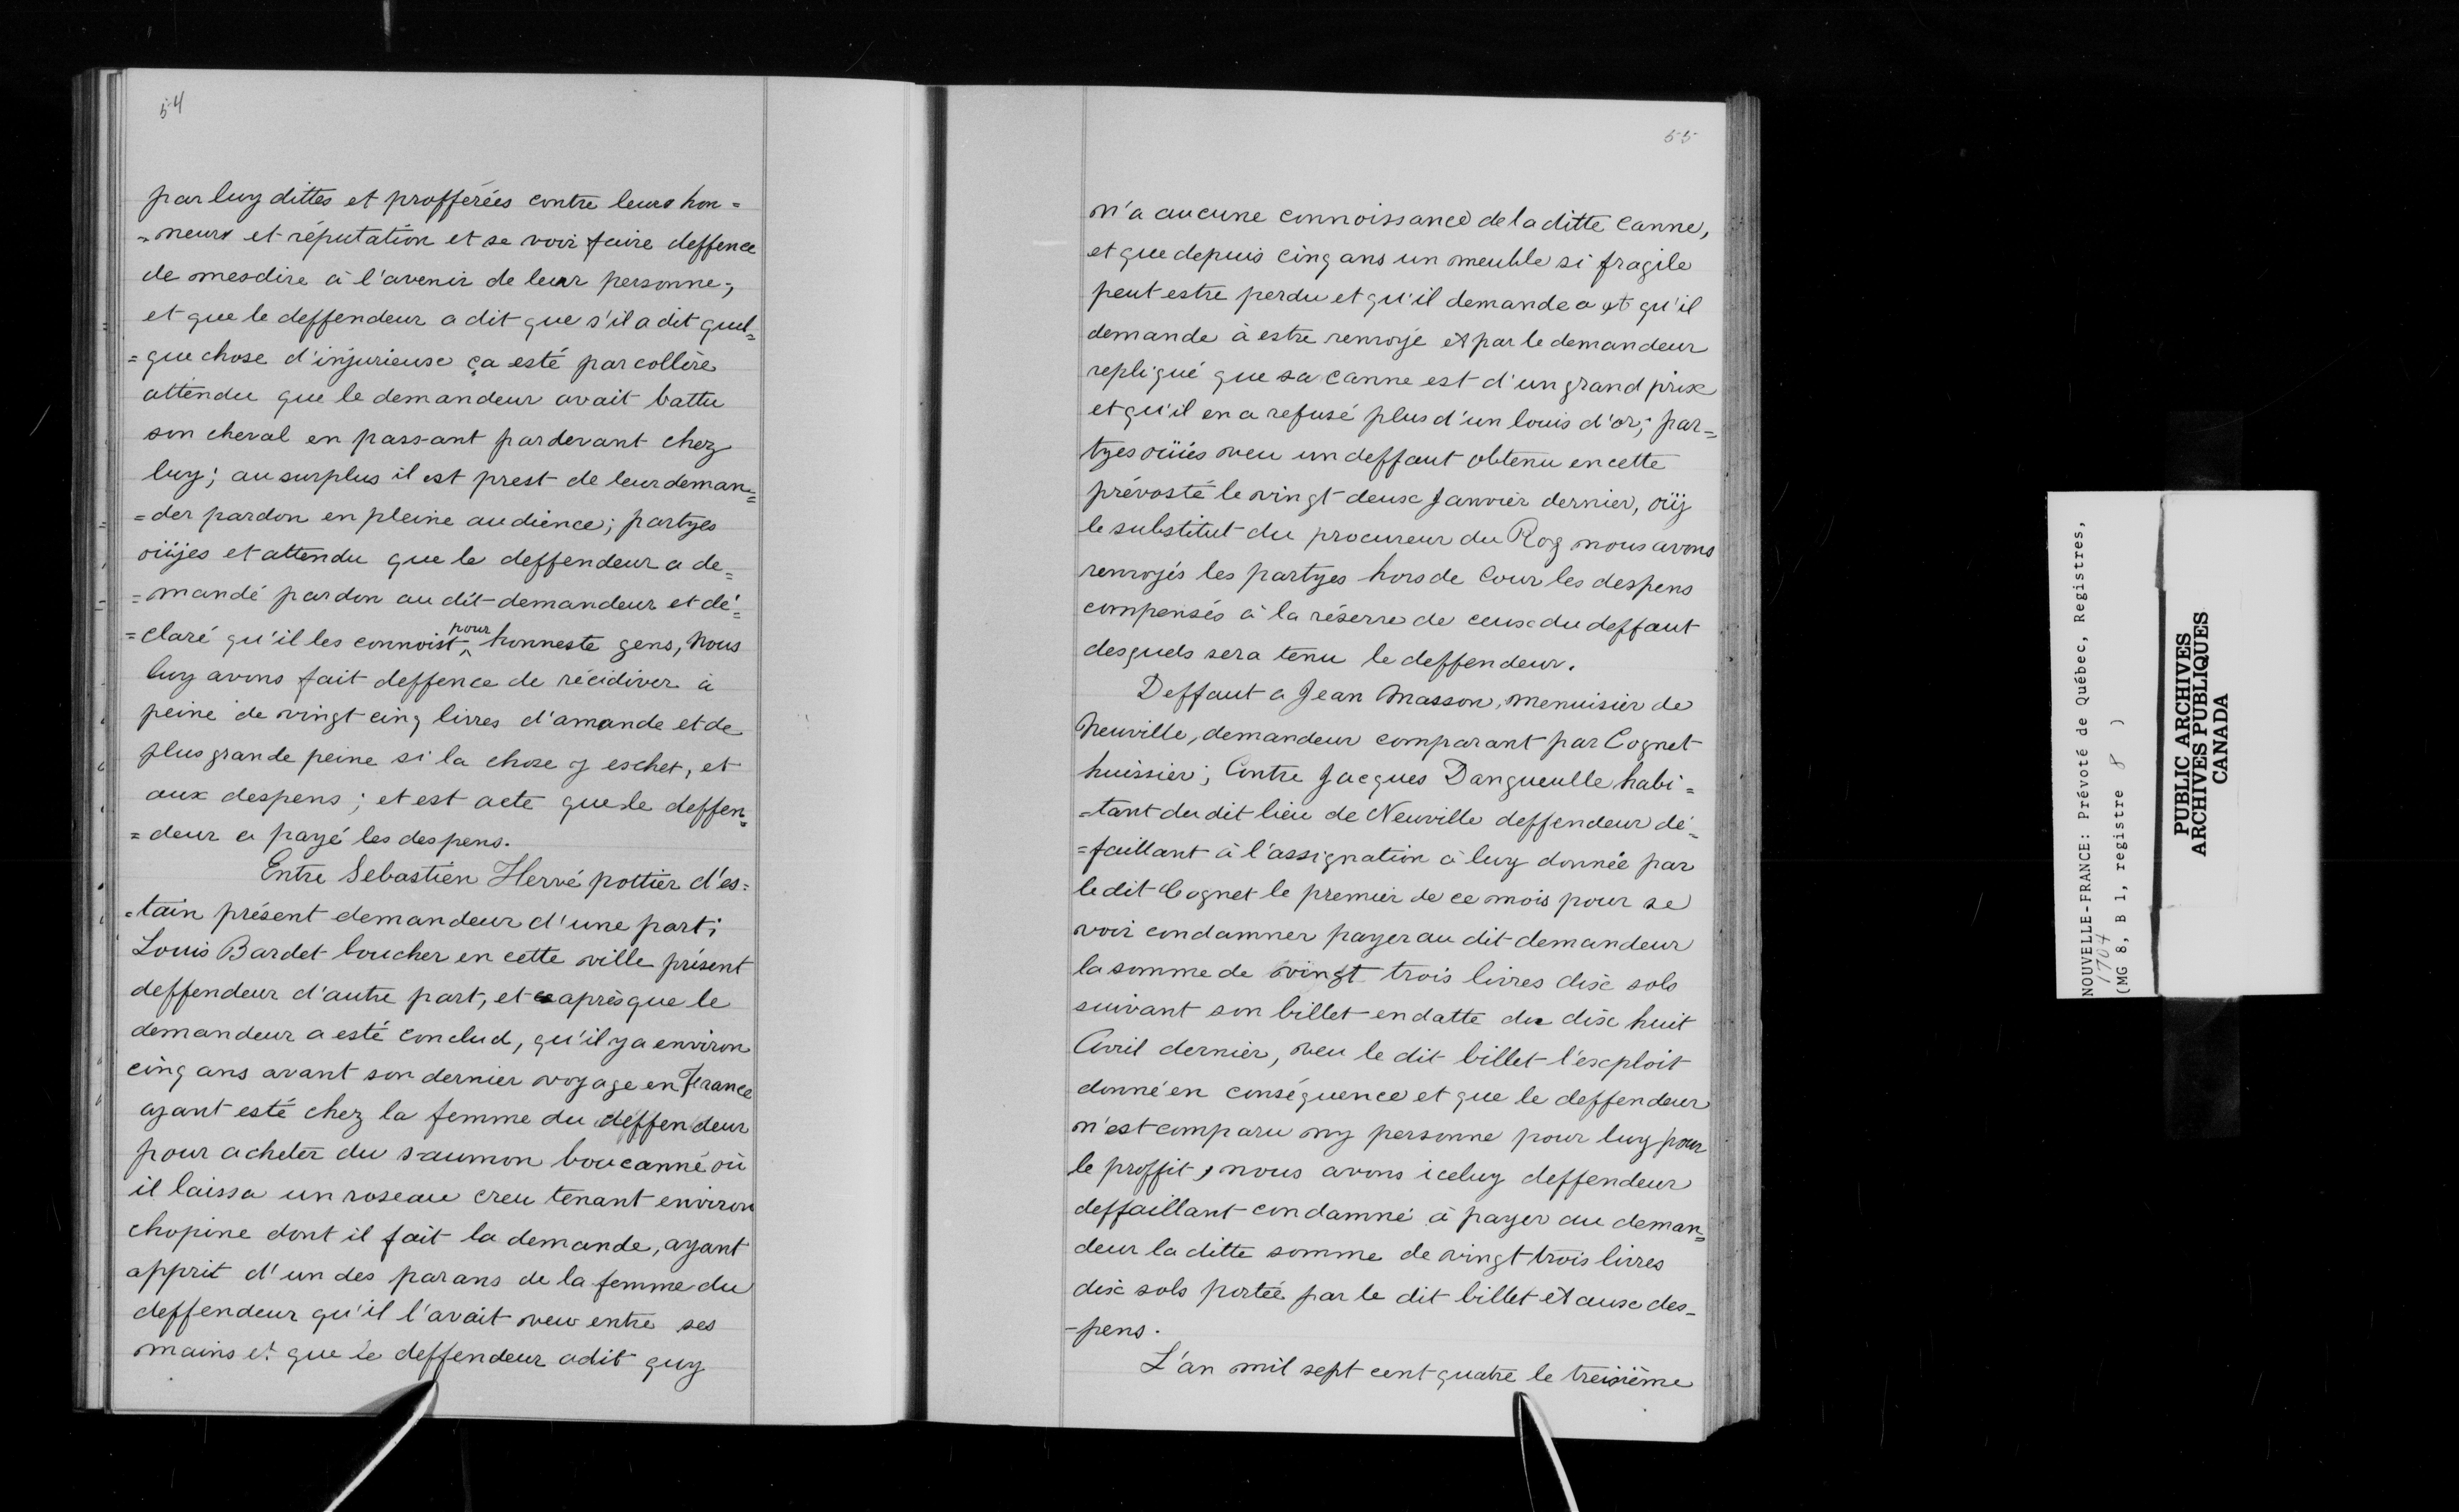 54
par luy dittes et profférées contre leurs hon=
=neurs et réputation et se voir faire deffence
de mesdire à l'avenir de leur personne;
et que le deffendeur a dit que s'il a dit quel=
=que chose d'injurieuse ça esté par collère
attendu que le demandeur avait battu
son cheval en passant pardevant chez
luy; au surplus il est prest de leur deman=
=der pardon en pleine audience; partyes
oüijes et attendu que le deffendeur a de=
=mandé pardon au dit demandeur et dé=
=claré qu'il les connoist pour honneste gens, Nous
luy avons fait deffence de récidiver à
peine de vingt cinq livres d'amande et de
plus grande peine si la chose y eschet, et
aux despens; et est acte que le deffen=
=deur a payé les despens.
Entre Sebastien Hervé pottier d'es=
=tain présent demandeur d'une part;
Louis Bardet boucher en cette ville présent
deffendeur d'autre part, et après que le
demandeur a esté conclud, qu'il y a environ
cinq ans avant son dernier voyage en France
ayant esté chez la femme du deffendeur
pour acheter du saumon boucanné où
il laissa un roseau creu tenant environ
chopine dont il fait la demande, ayant
apprit d'un des parans de la femme du
deffendeur qu'il l'avait veu entre ses
mains et que le deffendeur a dit quy
55
n'a aucune connoissance de la ditte Canne,
et que depuis cinq ans un meuble si fragile
peut estre perdu et qu'il demande a et qu'il
demande à estre renvoyé et par le demandeur
repliqué que sa canne est d'un grand prix
et qu'il en a refusé plus d'un louis d'or; par=
tyes oüiës veu un deffaut obtenu en cette
prévosté le vingt deux Janvier dernier, oüy
le substitut du procureur du Roy nous avons
renvoyés les partyes hors de Cour les despens
compensés à la réserve de ceux du deffaut
desquels sera tenu le deffendeur.
Deffaut a Jean Masson, menuisier de
Neuville, demandeur comparant par Cognet
huissier; Contre Jacques Dangueulle habi=
=tant du dit lieu de Neuville deffendeur dé=
=faillant à l'assignation à luy donnée par
le dit Cognet le premier de ce mois pour se
voir condamner payer au dit demandeur
la somme de vingt trois livres dix sols
suivant son billet en datte du dix huit
Avril dernier, veu le dit billet l'exploit
donné en conséquence et que le deffendeur
n'est comparu ny personne pour luy pour
le proffit, nous avons iceluy deffendeur
deffaillant condamné à payer au deman=
deur la ditte somme de vingt trois livres
dix sols portée par le dit billet et aux des-
-pens.
L'an mil sept cent quatre le treisième
NOUVELLE-FRANCE: Prévoté de Québec, Registres,
1704
(MG 8, B 1, registre 8 )
PUBLIC ARCHIVES
ARCHIVES PUBLIQUES
CANADA